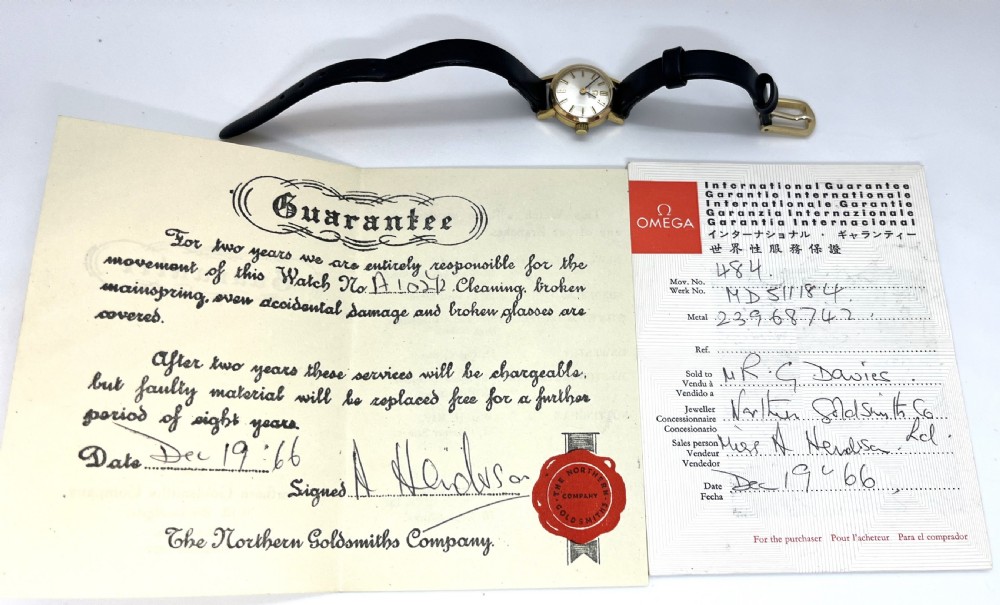 Guarantee
For two years we are entirely responsible for the
movement of this Watch No. Cleaning, broken
mainspring, even accidental damage and broken glasses are
covered.
After two years these services will be chargeable,
but faulty material will be replaced free for a further
period of eight years.
Date Dec 19 '66
Signed A Henderson
The Northern Goldsmiths Company.
THE NORTHERN
COMPANY
GOLDSMITHS
Ω
OMEGA
International Guarantee
Garantie Internationale
Internationale Garantie
Garanzia Internazionale
Garantia Internacional
インターナショナル・ギャランティー
世界性服務保證
484.
Mov. No.
Werk No. MD 511184.
Metal 23968742.
Ref.
Sold to
Vendu à
Vendido a
MR. G Davies.
Jeweller
Concessionnaire
Concesionario
Northern Goldsmiths Co
Ltd.
Sales person
Vendeur
Vendedor
Miss A Henderson.
Date
Fecha
Dec 19 '66
For the purchaser Pour l'acheteur Para el comprador